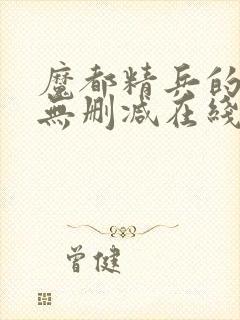 魔都精兵的
無删减在綫
曾健